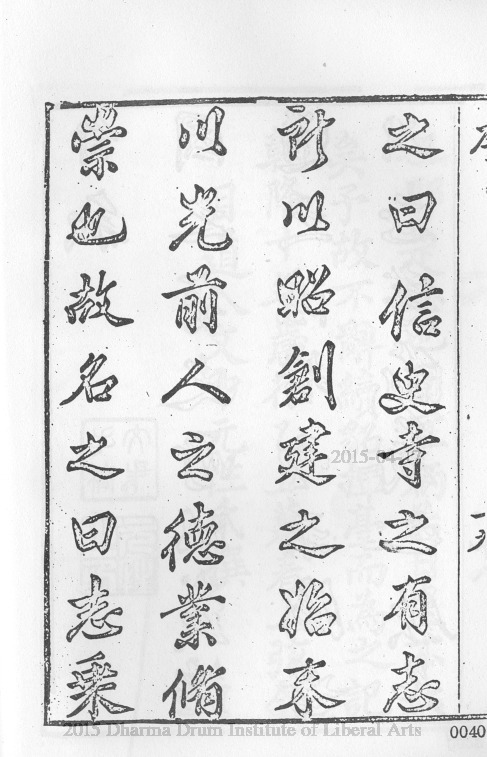 之曰信史寺之有志
所以昭創建之始末
以光前人之德業備
崇也故名之曰志乘
2015 Dharma Drum Institute of Liberal Arts
0040